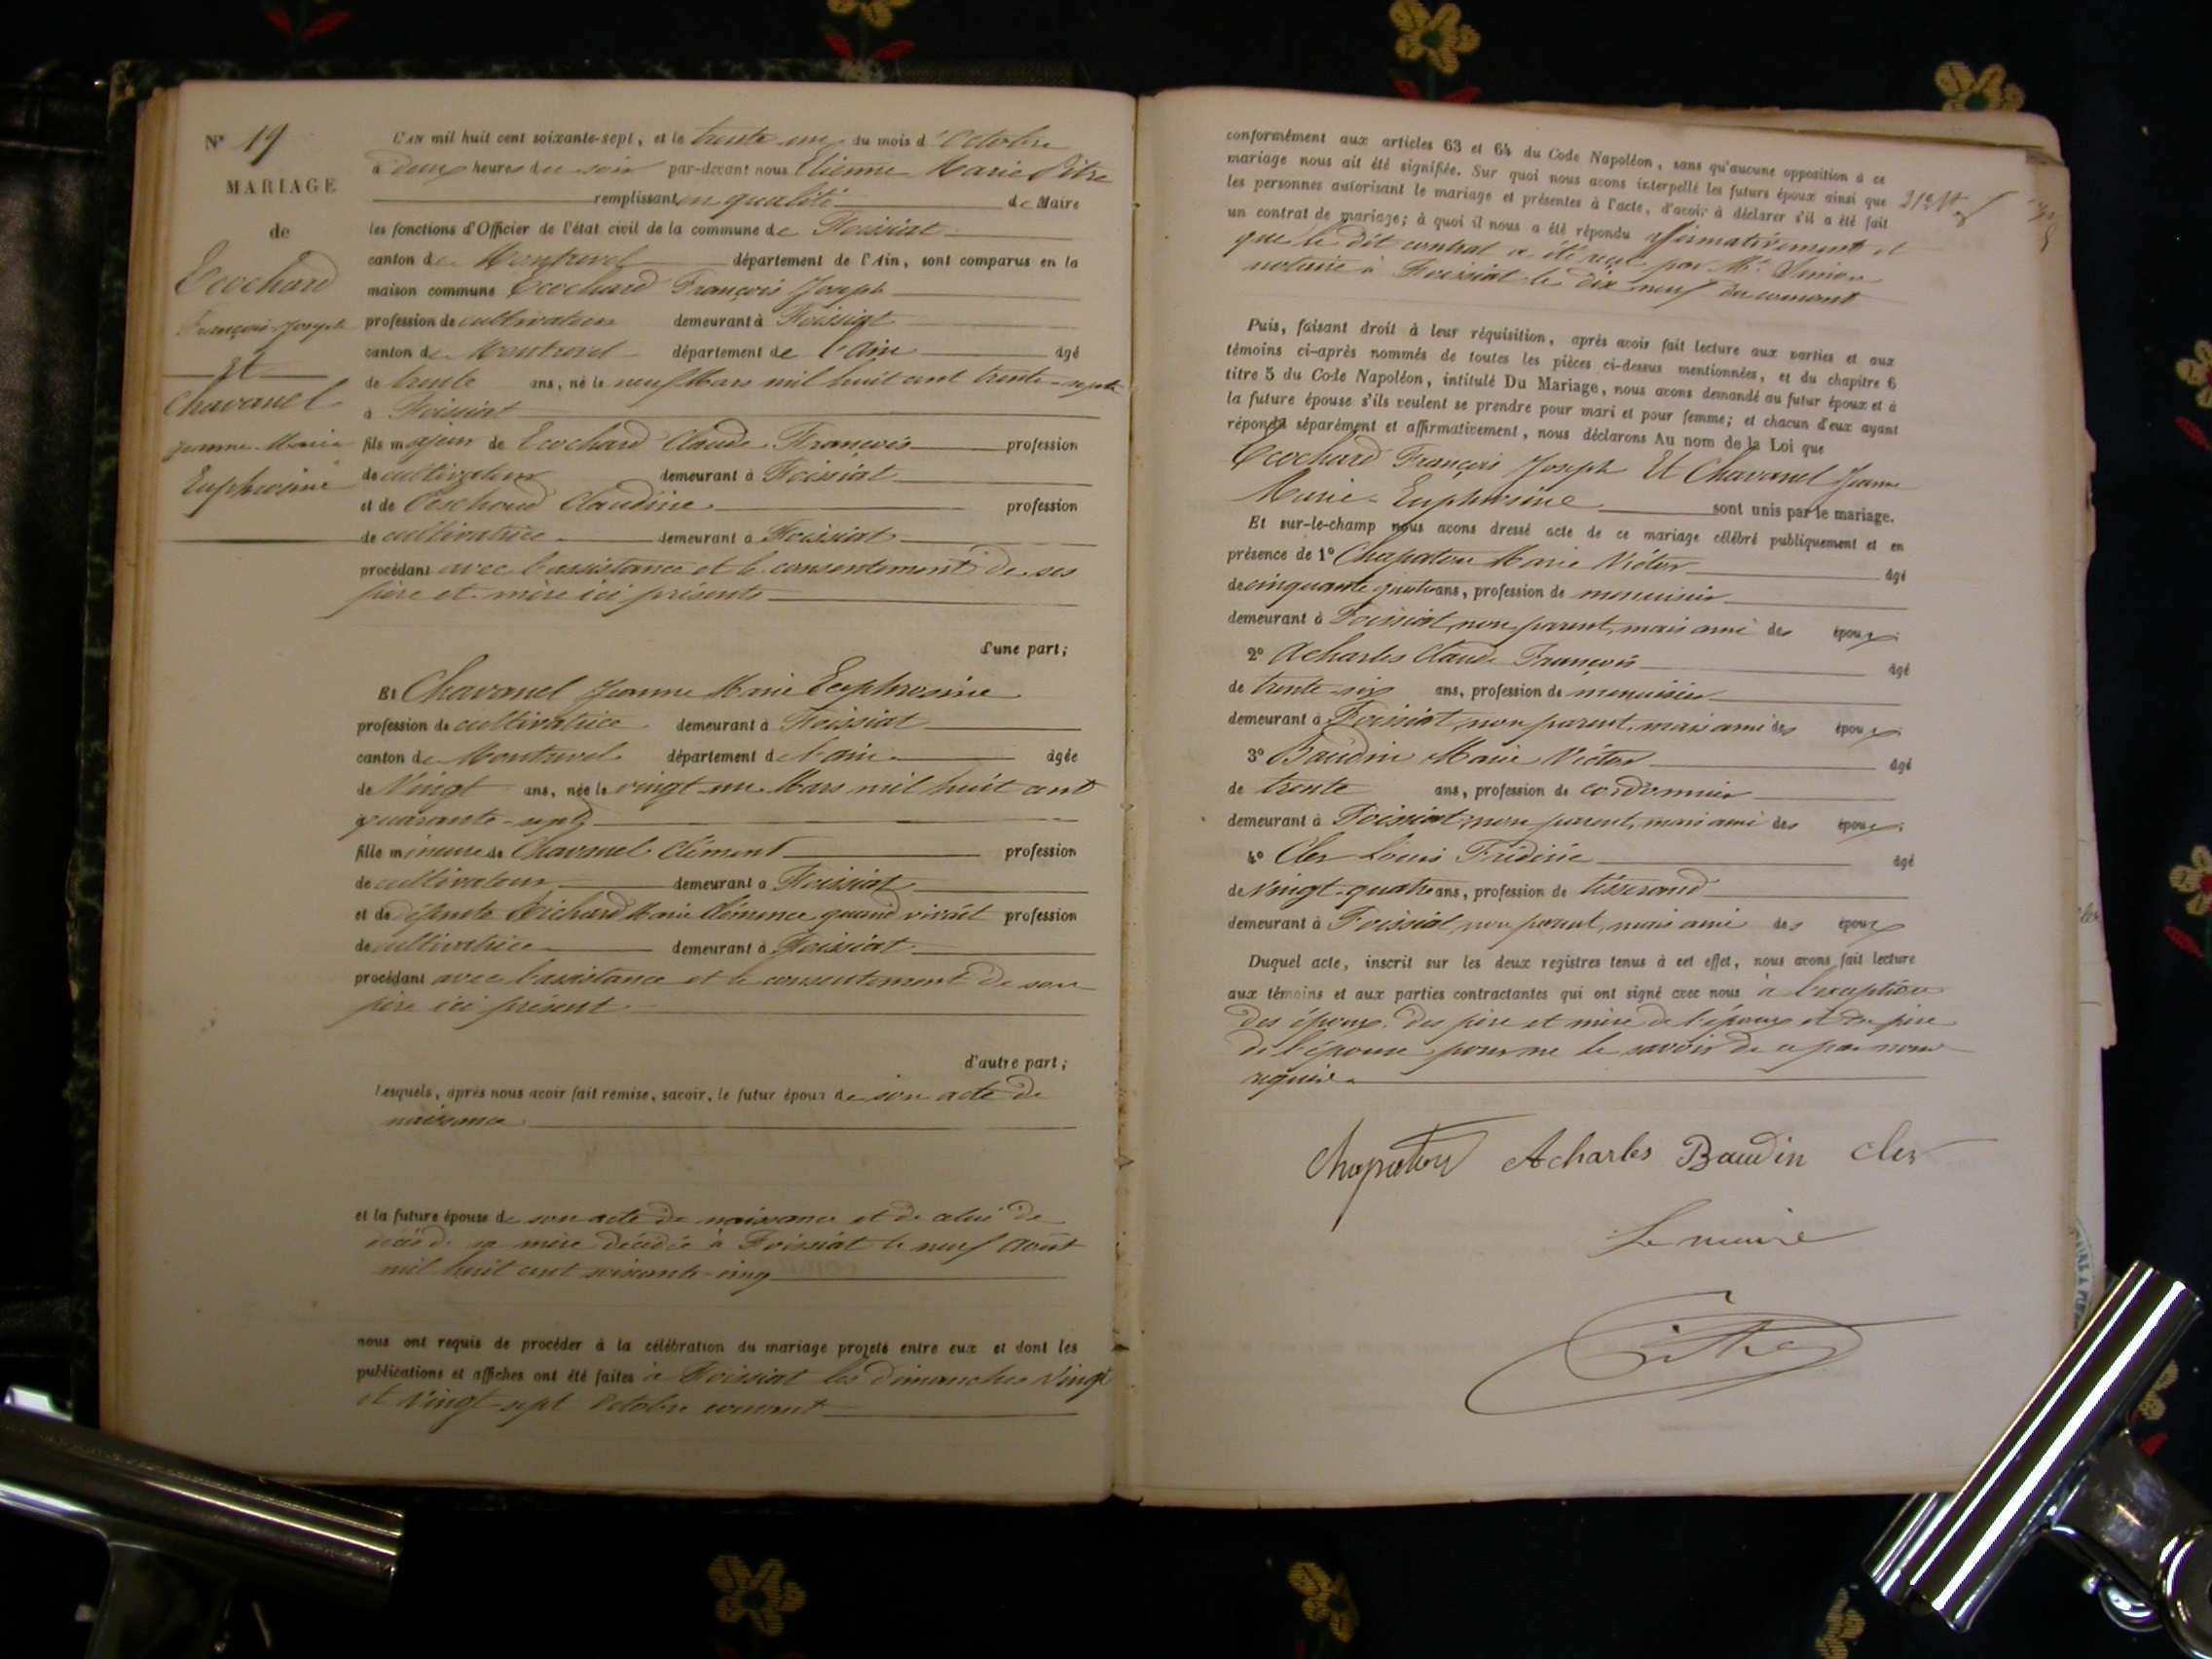 N° 19
MARIAGE
de
Ecochard
François Joseph
Et
Chavanel
Jeanne Marie
Euphrosine
L'AN mil huit cent soixante-sept, et le trente un du mois d'Octobre
à deux heures du soir par-devant nous Etienne Marie Pitre
remplissant en qualité de Maire
les fonctions d'Officier de l'état civil de la commune de Foissiat
canton de Montrevel département de l'Ain, sont comparus en la
maison commune Ecochard François Joseph
profession de cultivateur demeurant à Foissiat
canton de Montrevel département de l'Ain âgé
de trente ans, né le neuf Mars mil huit cent trente-sept
à Foissiat
fils majeur de Ecochard Claude François profession
de cultivateur demeurant à Foissiat
et de Claudine profession
de cultivatrice demeurant à Foissiat
procédant avec l'assistance et le consentement de ses
père et mère ici présents
d'une part;
Et Chavanel Jeanne Marie Euphrosine
profession de cultivatrice demeurant à Foissiat
canton de Montrevel département de l'ain âgée
de Vingt ans, née le vingt-un Mars mil huit cent
quarante-sept
fille mineure de Chavanel Clément profession
de cultivateur demeurant à Foissiat
et de défunte Marie Clémence quand vivait profession
de cultivatrice demeurant à Foissiat
procédant avec l'assistance et le consentement de son
père ici présent
d'autre part;
Lesquels, après nous avoir fait remise, savoir, le futur époux de son acte de
naissance
et la future épouse de son acte de naissance et de celui de
décès de sa mère décédée à Foissiat le neuf Août
mil huit cent soixante-cinq
nous ont requis de procéder à la célébration du mariage projeté entre eux et dont les
publications et affiches ont été faites à Foissiat les dimanches Vingt
et Vingt-sept Octobre courant
conformément aux articles 63 et 64 du Code Napoléon, sans qu'aucune opposition à ce
mariage nous ait été signifiée. Sur quoi nous avons interpellé les futurs époux ainsi que
les personnes autorisant le mariage et présentes à l'acte, d'avoir à déclarer s'il a été fait
un contrat de mariage; à quoi il nous a été répondu affirmativement et
que le dit contrat a été reçu par Me
notaire à Foissiat le dix neuf du courant
Puis, faisant droit à leur réquisition, après avoir fait lecture aux parties et aux
témoins ci-après nommés de toutes les pièces ci-dessus mentionnées, et du chapitre 6
titre 5 du Code Napoléon, intitulé Du Mariage, nous avons demandé au futur époux et à
la future épouse s'ils veulent se prendre pour mari et pour femme; et chacun d'eux ayant
répondu séparément et affirmativement, nous déclarons Au nom de la Loi que
Ecochard François Joseph Et Chavanel Jeanne
Marie-Euphrosine sont unis par le mariage.
Et sur-le-champ nous avons dressé acte de ce mariage célébré publiquement et en
présence de 1° Chapatou Marie Victor âgé
de cinquante quatre ans, profession de menuisier
demeurant à Foissiat, non parent, mais ami des époux;
2° Acharles Claude François âgé
de trente-six ans, profession de menuisier
demeurant à Foissiat, non parent, mais ami des époux;
3° Baudin Marie Victor âgé
de trente ans, profession de cordonnier
demeurant à Foissiat, non parent, mais ami des époux;
4° Cler Louis Frédéric âgé
de Vingt-quatre ans, profession de tisserand
demeurant à Foissiat, non parent, mais ami des époux
Duquel acte, inscrit sur les deux registres tenus à cet effet, nous avons fait lecture
aux témoins et aux parties contractantes qui ont signé avec nous à l'exception
des époux, des père et mère de l'époux et du père
de l'épouse pour ne le savoir de ce par nous
requis.
Chapatou Acharles Baudin Cler
Le maire
Pitre